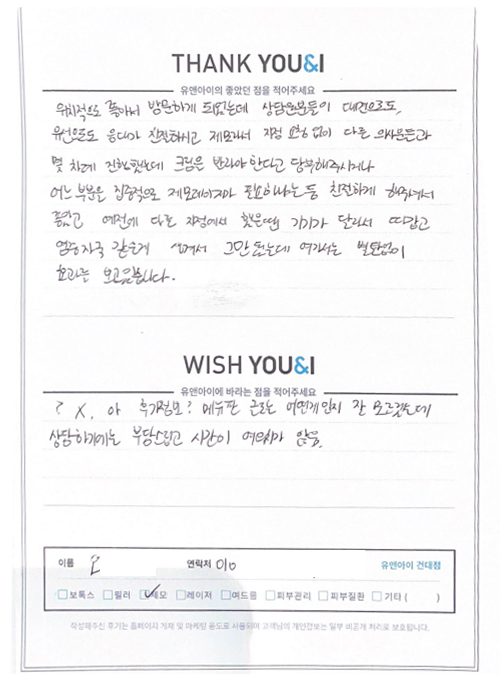 THANK YOU&I
유앤아이의 좋았던 점을 적어주세요
위치적으로 좋아서 방문하게 되었는데 상담원분들이 대면으로도,
유선으로도 응대가 친절하시고 제모라서 지정 요청 없이 다른 의사분들과
몇 차례 진행했는데 크림은 발라야 한다고 당부해주시거나
어느 부분을 집중적으로 제모레이저가 필요하다는 등 친절하게 해주셔서
좋았고 예전에 다른 지점에서 했을때 기기가 달라서 따갑고
염증자국 같은게 생겨서 그만뒀는데 여기서는 별탈없이
효과를 보고있습니다.
WISH YOU&I
유앤아이에 바라는 점을 적어주세요
? X, 아 추가정보? 메뉴판 근로는 어떤게인지 잘 모르겠는데
상담하기에는 부담스럽고 시간이 여의치가 않음.
이름 연락처 010 유앤아이 건대점
보톡스 필러 제모 레이저 여드름 피부관리 피부질환 기타 ( )
작성해주신 후기는 홈페이지 게재 및 마케팅 용도로 사용되며 고객님의 개인정보는 일부 비공개 처리로 보호됩니다.